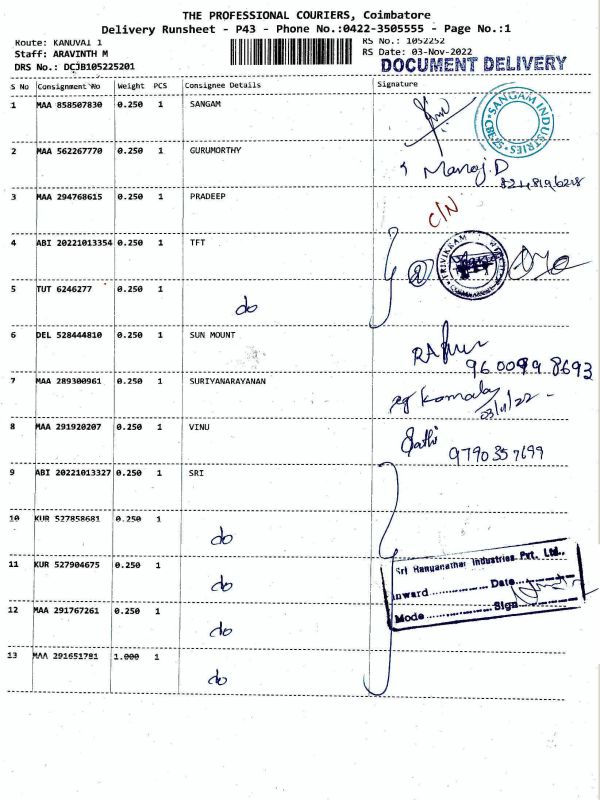 THE PROFESSIONAL COURIERS, Coimbatore
Delivery Runsheet - P43 - Phone No.:0422-3505555 - Page No.:1
Route: KANUVAI 1
Staff: ARAVINTH M
DRS No.: DCJB105225201
RS No.: 1052252
RS Date: 03-Nov-2022
DOCUMENT DELIVERY
S No Consignment No Weight PCS Consignee Details Signature
1 MAA 858507830 0.250 1 SANGAM
SANGAM INDUSTRIES
2 MAA 562267770 0.250 1 GURUMORTHY
Manoj.D
3 MAA 294768615 0.250 1 PRADEEP
C/N
4 ABI 20221013354 0.250 1 TFT
TRIVIKRAM
5 TUT 6246277 0.250 1
do
6 DEL 528444810 0.250 1 SUN MOUNT
9600998693
7 MAA 289300961 0.250 1 SURIYANARAYANAN
03/11/22
8 MAA 291920207 0.250 1 VINU
Sathi
9790357699
9 ABI 20221013327 0.250 1 SRI
10 KUR 527858681 0.250 1
do
11 KUR 527904675 0.250 1
do
Sri Ranganathar Industries Pvt. Ltd.,
Inward Date
12 MAA 291767261 0.250 1
do
Mode Sign
13 MAA 291651781 1.000 1
do